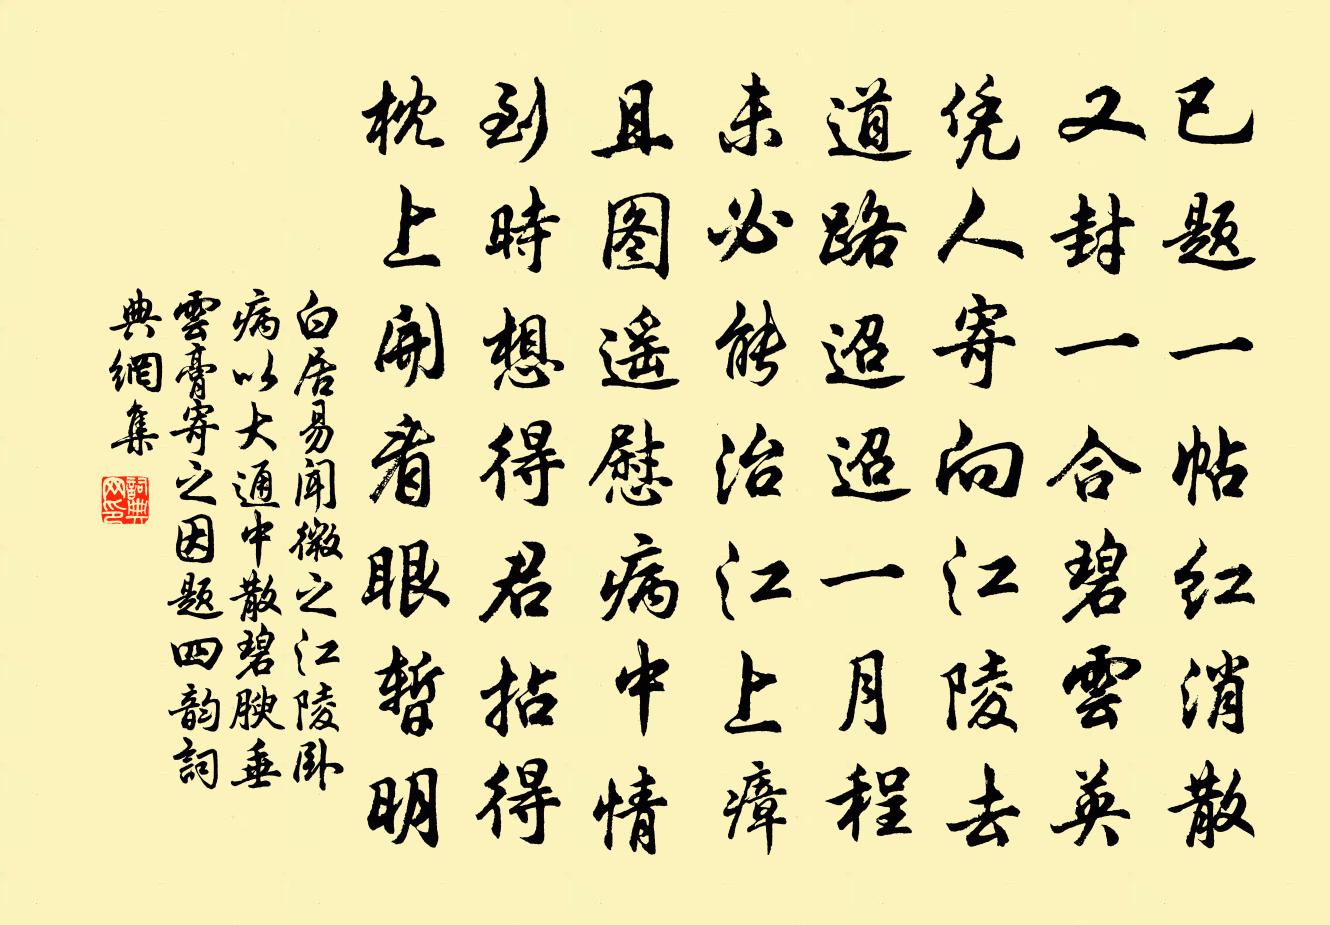 已题一帖红消散
又封一合碧雲英
凭人寄向江陵去
道路迢迢一月程
未必能治江上瘴
且图遥慰病中情
到時想得君拈得
枕上開看眼暫明
白居易闻微之江陵卧
病以大通中散碧腴垂
雲膏寄之因题四韵詞
典網集
詞典网印